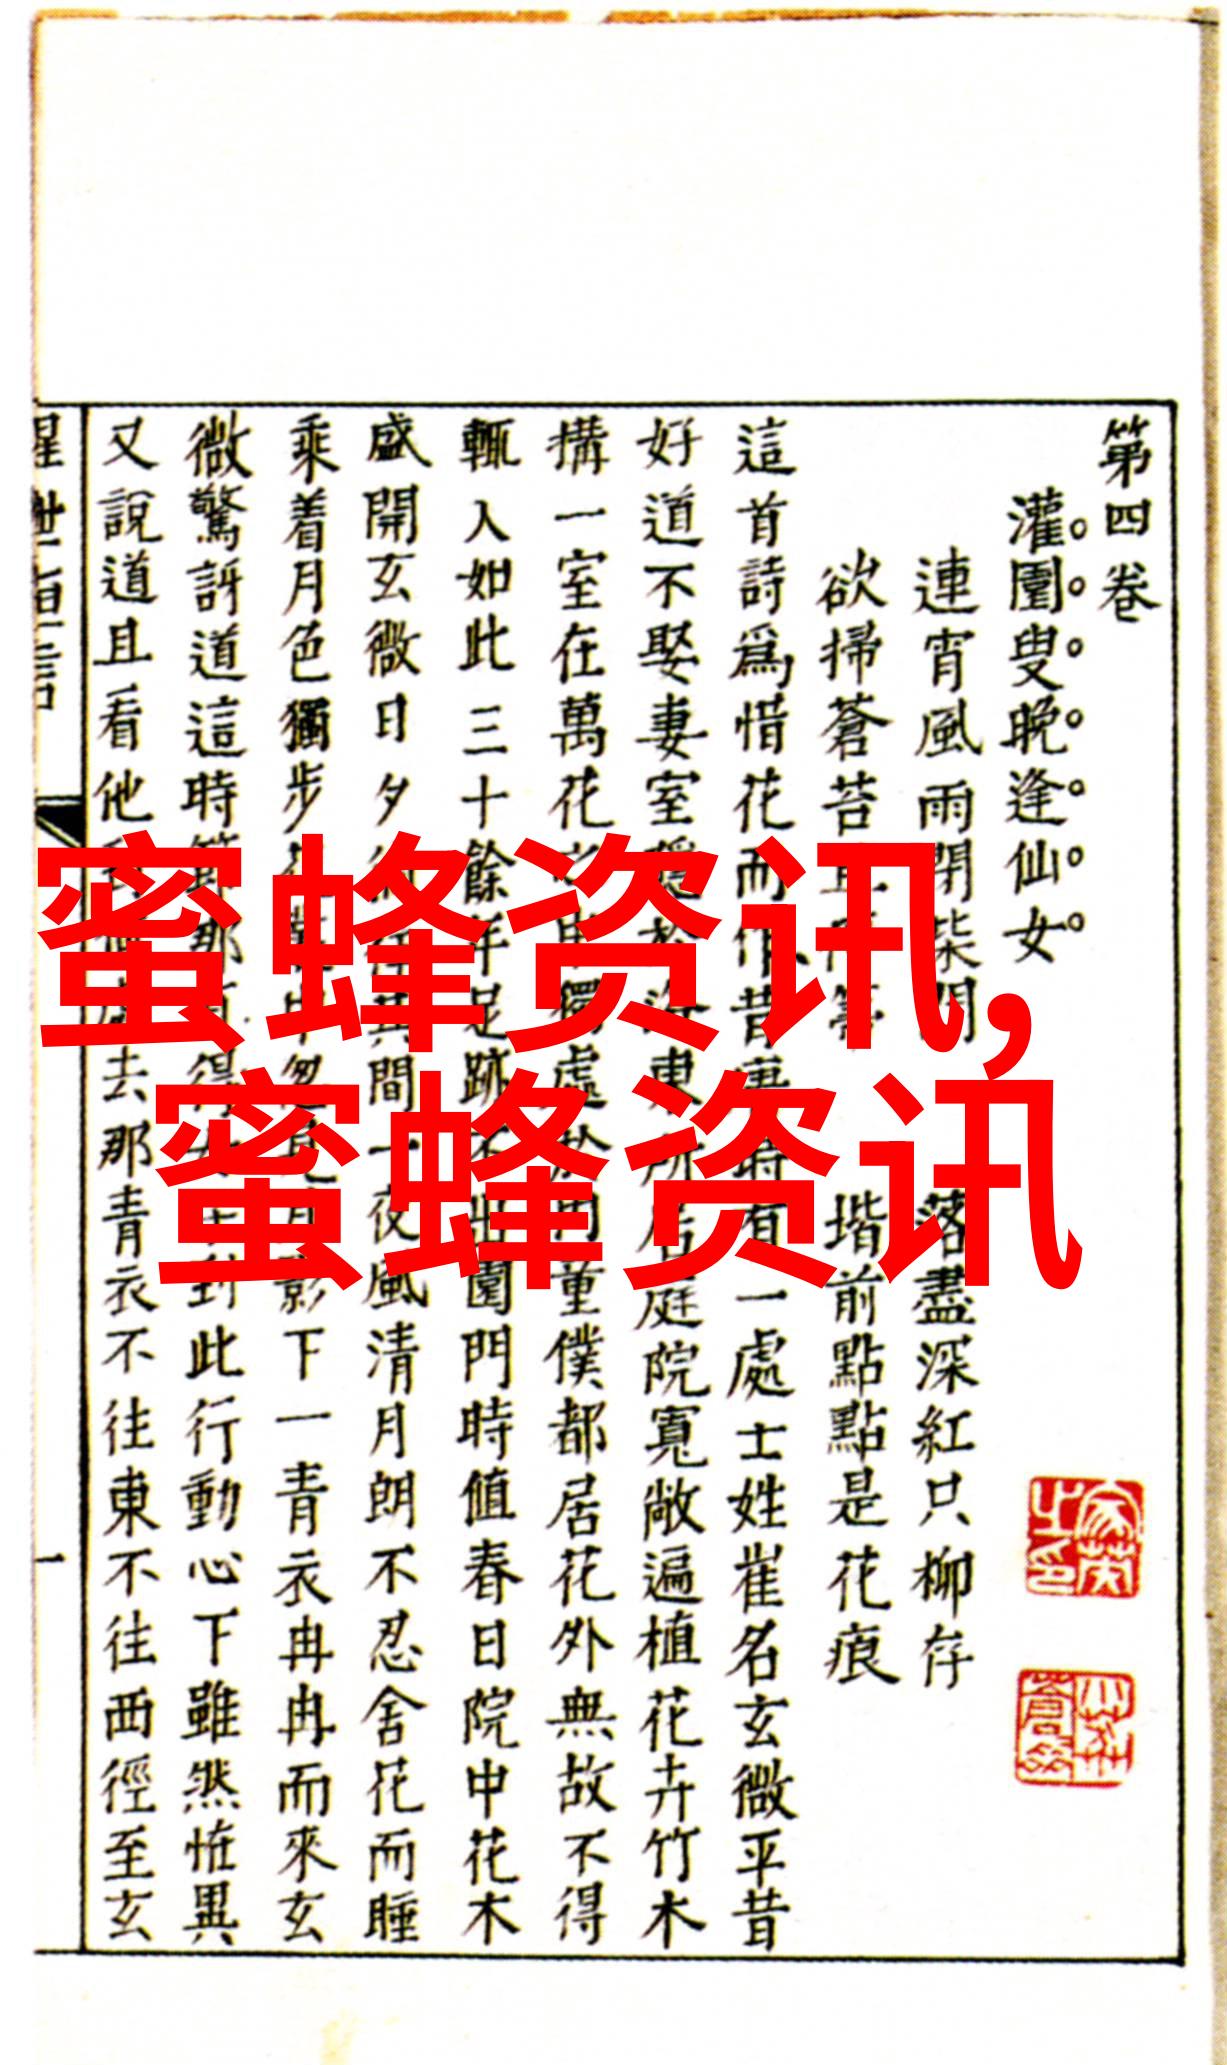 第四卷
灌園叟晚逢仙女
連宵風雨閉柴門 落盡深紅只柳存
欲掃蒼苔且 階前點點是花痕
這首詩爲惜花而作昔唐時有一處士姓崔名玄微平昔
好道不娶妻室隱於 東所居庭院寬敞遍植花卉竹木
搆一室在萬花 獨處於 童僕都居花外無故不得
輒入如此三十餘年足跡不出園門時值春日院中花木
盛開玄微日夕 其間一夜風清月朗不忍舍花而睡
乘着月色獨步 中忽見月影下一青衣冉冉而來玄
微驚訝道這時節那 得 到此行動心下雖然怪異
又說道且看他 去那青衣不往東不往西徑至玄
醒世恒言
一
蜜蜂资讯,
蜜蜂资讯